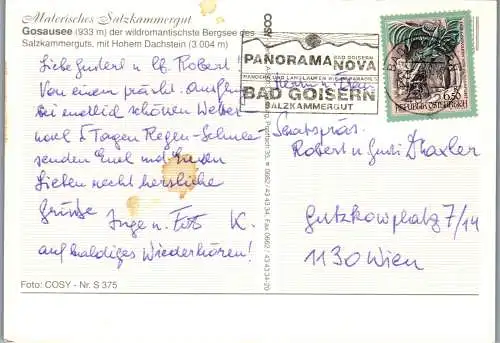 Malerisches Salzkammergut
Gosausee (933 m) der wildromantischste Bergsee des
Salzkammerguts, mit Hohem Dachstein (3.004 m)
Liebe Gusterl u. lb. Robert!
Von einem prächt. Ausflug
bei endlich schönen Wetter
nach 5 Tagen Regen-Schnee
senden Euch und
Lieben recht herzliche
Grüsse Inge u. Fritz K.
auf baldiges Wiederhören!
Foto: COSY - Nr. S 375
COSY
Postfach 35, ☎ 0662/43 43 34, Fax 0662/43 43 34-20
PANORAMA
BAD GOISERN
NOVA
WANDERN UND LANGLAUFEN
BAD GOISERN
SALZKAMMERGUT
6.50
REPUBLIK ÖSTERREICH
Herrn u. Frau
Senatspräs.
Robert u. Gusti Draxler
Gutzkowplatz 7/14
1130 Wien